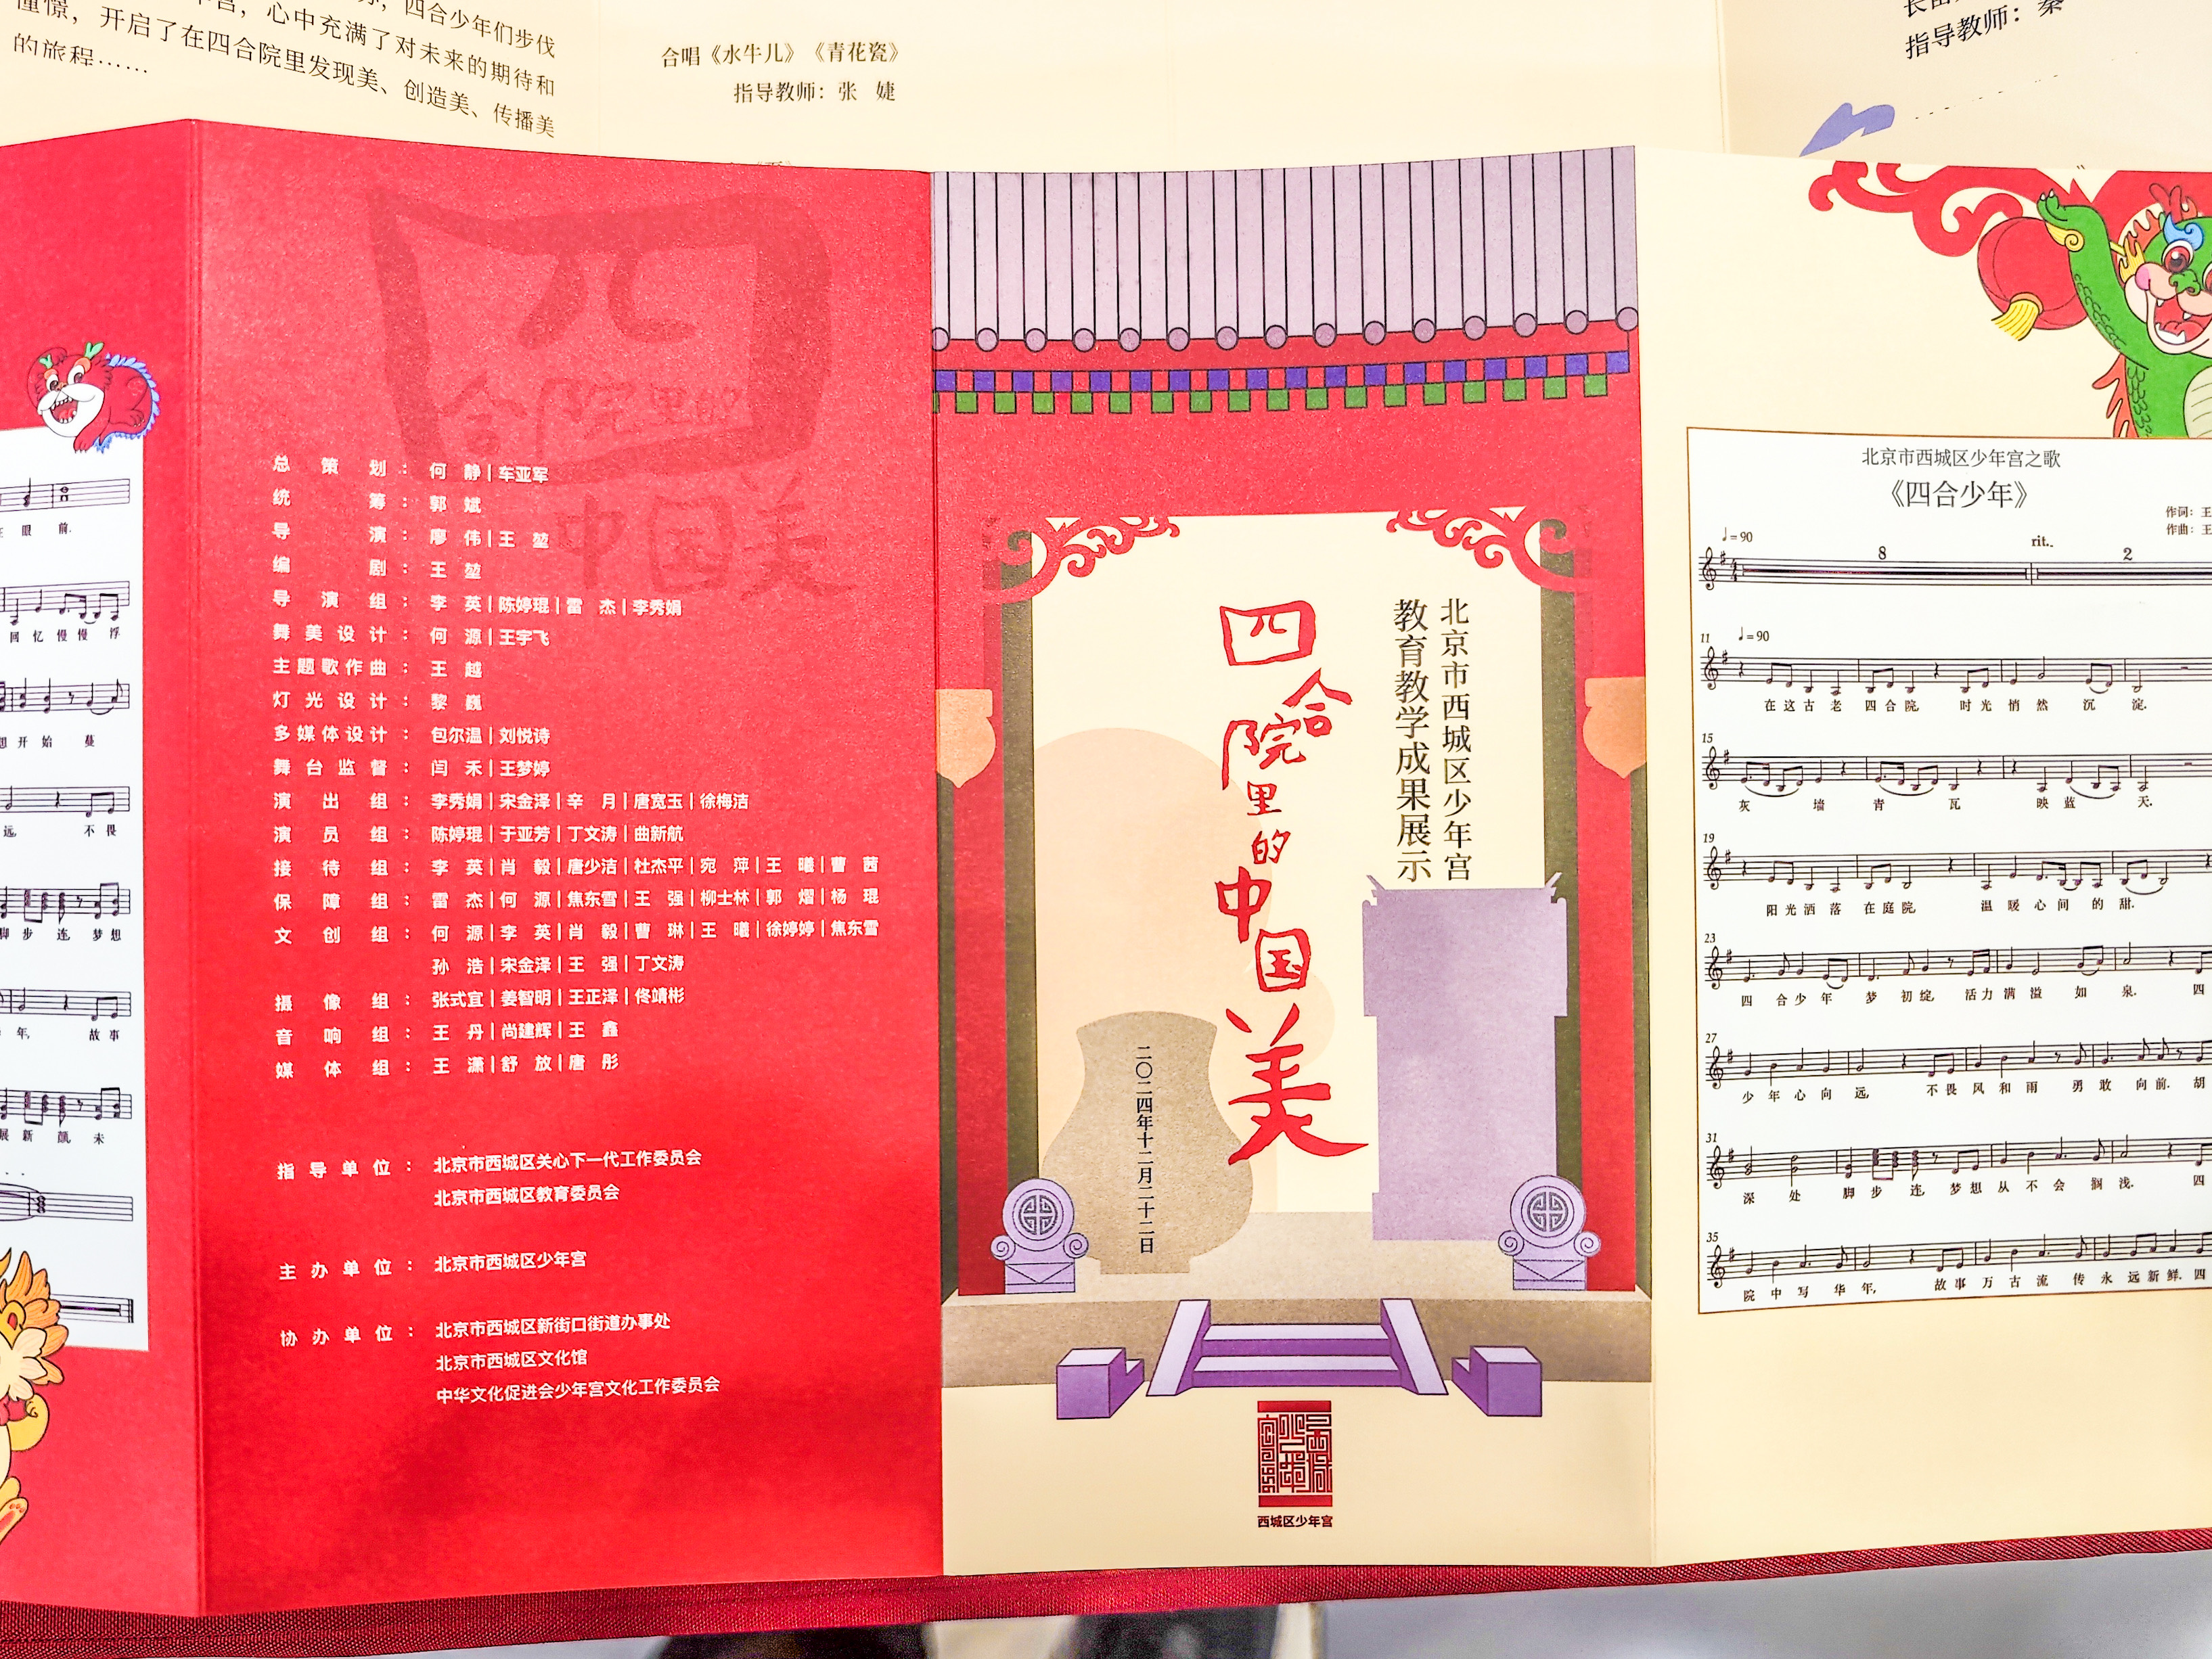 四合少年们步伐
心中充满了对未来的期待和
憧憬，开启了在四合院里发现美、创造美、传播美
的旅程……
合唱《水牛儿》《青花瓷》
指导教师：张 婕
指导教师：秦
四
合院里的
中国美
总策划：何 静|车亚军
统筹：郭 斌
导演：廖 伟|王 堃
编剧：王 堃
导演组：李 英|陈婷琨|雷 杰|李秀娟
舞美设计：何 源|王宇飞
主题歌作曲：王 越
灯光设计：黎 巍
多媒体设计：包尔温|刘悦诗
舞台监督：闫 禾|王梦婷
演出组：李秀娟|宋金泽|辛 月|唐宽玉|徐梅洁
演员组：陈婷琨|于亚芳|丁文涛|曲新航
接待组：李 英|肖 毅|唐少洁|杜杰平|宛 萍|王 曦|曹 茜
保障组：雷 杰|何 源|焦东雪|王 强|柳士林|郭 熠|杨 琨
文创组：何 源|李 英|肖 毅|曹 琳|王 曦|徐婷婷|焦东雪
孙 浩|宋金泽|王 强|丁文涛
摄像组：张式宜|姜智明|王正泽|佟靖彬
音响组：王 丹|尚建辉|王 鑫
媒体组：王 潇|舒 放|唐 彤
指导单位：北京市西城区关心下一代工作委员会
北京市西城区教育委员会
主办单位：北京市西城区少年宫
协办单位：北京市西城区新街口街道办事处
北京市西城区文化馆
中华文化促进会少年宫文化工作委员会
北京市西城区少年宫
教育教学成果展示
四合院里的中国美
二〇二四年十二月二十二日
西城区少年宫
北京市西城区少年宫之歌
《四合少年》
作词：王
作曲：王
♩=90
8
rit.
2
11 ♩=90
在这古老 四合院， 时光悄然 沉 淀.
15
灰 墙 青 瓦 映 蓝 天.
19
阳光洒落 在庭院， 温暖心间 的 甜.
23
四 合少年 梦 初绽， 活力满溢 如 泉. 四
27
少年心向远， 不畏风和雨 勇敢 向前. 胡
31
深 处 脚步 连， 梦想从不会 搁 浅. 四
35
院中写华年， 故事万古流 传永远新鲜. 四
眼 前.
回忆慢慢 浮
想开始 蔓
远， 不畏
脚步 连， 梦想
年， 故事
展新颜， 未